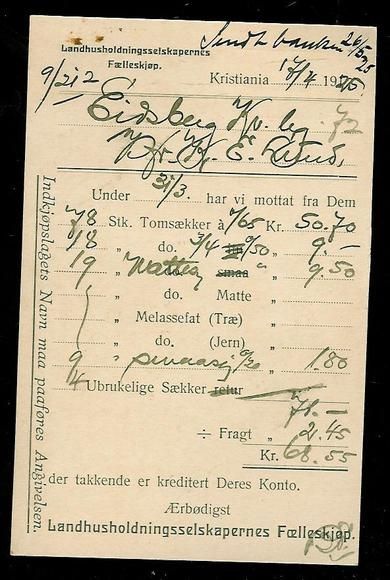 Sendt banken 26/5 25
Landhusholdningsselskapernes
Fælleskjøp.
9/212
Kristiania 17/4 1925
Eidsberg 72
Lund,
Under 31/3. har vi mottat fra Dem
78 Stk. Tomsækker à /65 Kr. 50.70
18 „ do. 3/4 /50 „ 9.-
19 „ smaa „ 9.50
„ do. Matte „
„ Melassefat (Træ) „
„ do. (Jern) „
9 „ smaasæk /20 „ 1.80
14 Ubrukelige Sækker retur
71.-
÷ Fragt „ 2.45
Kr. 68.55
der takkende er kreditert Deres Konto.
Ærbødigst
Landhusholdningsselskapernes Fælleskjøp.
Indkjøpslagets Navn maa paaføres Angivelsen.